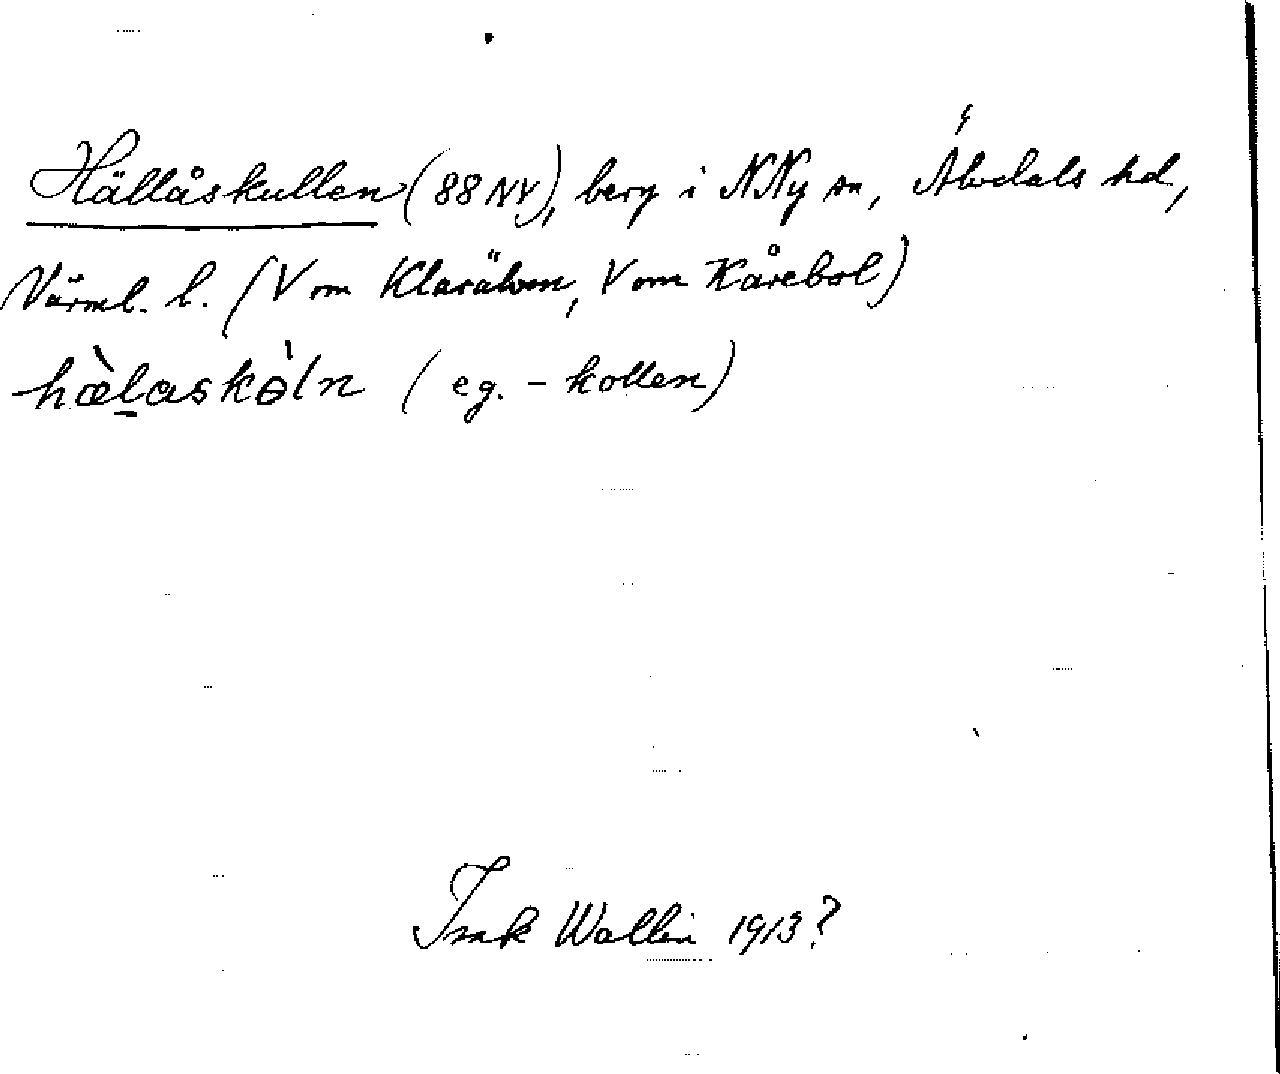 Hällåskullen (88 NV), berg i NNy sn, Älvdals hd,
Värml. l. (V om Klarälven, V om Kårebol)
hælaskөln (eg. -kollen)
Isak Wallin 1913?